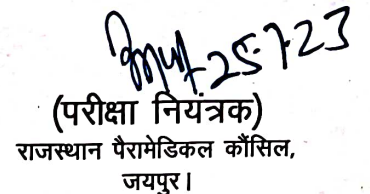 25-7-23
(परीक्षा नियंत्रक)
राजस्थान पैरामेडिकल कौंसिल,
जयपुर।